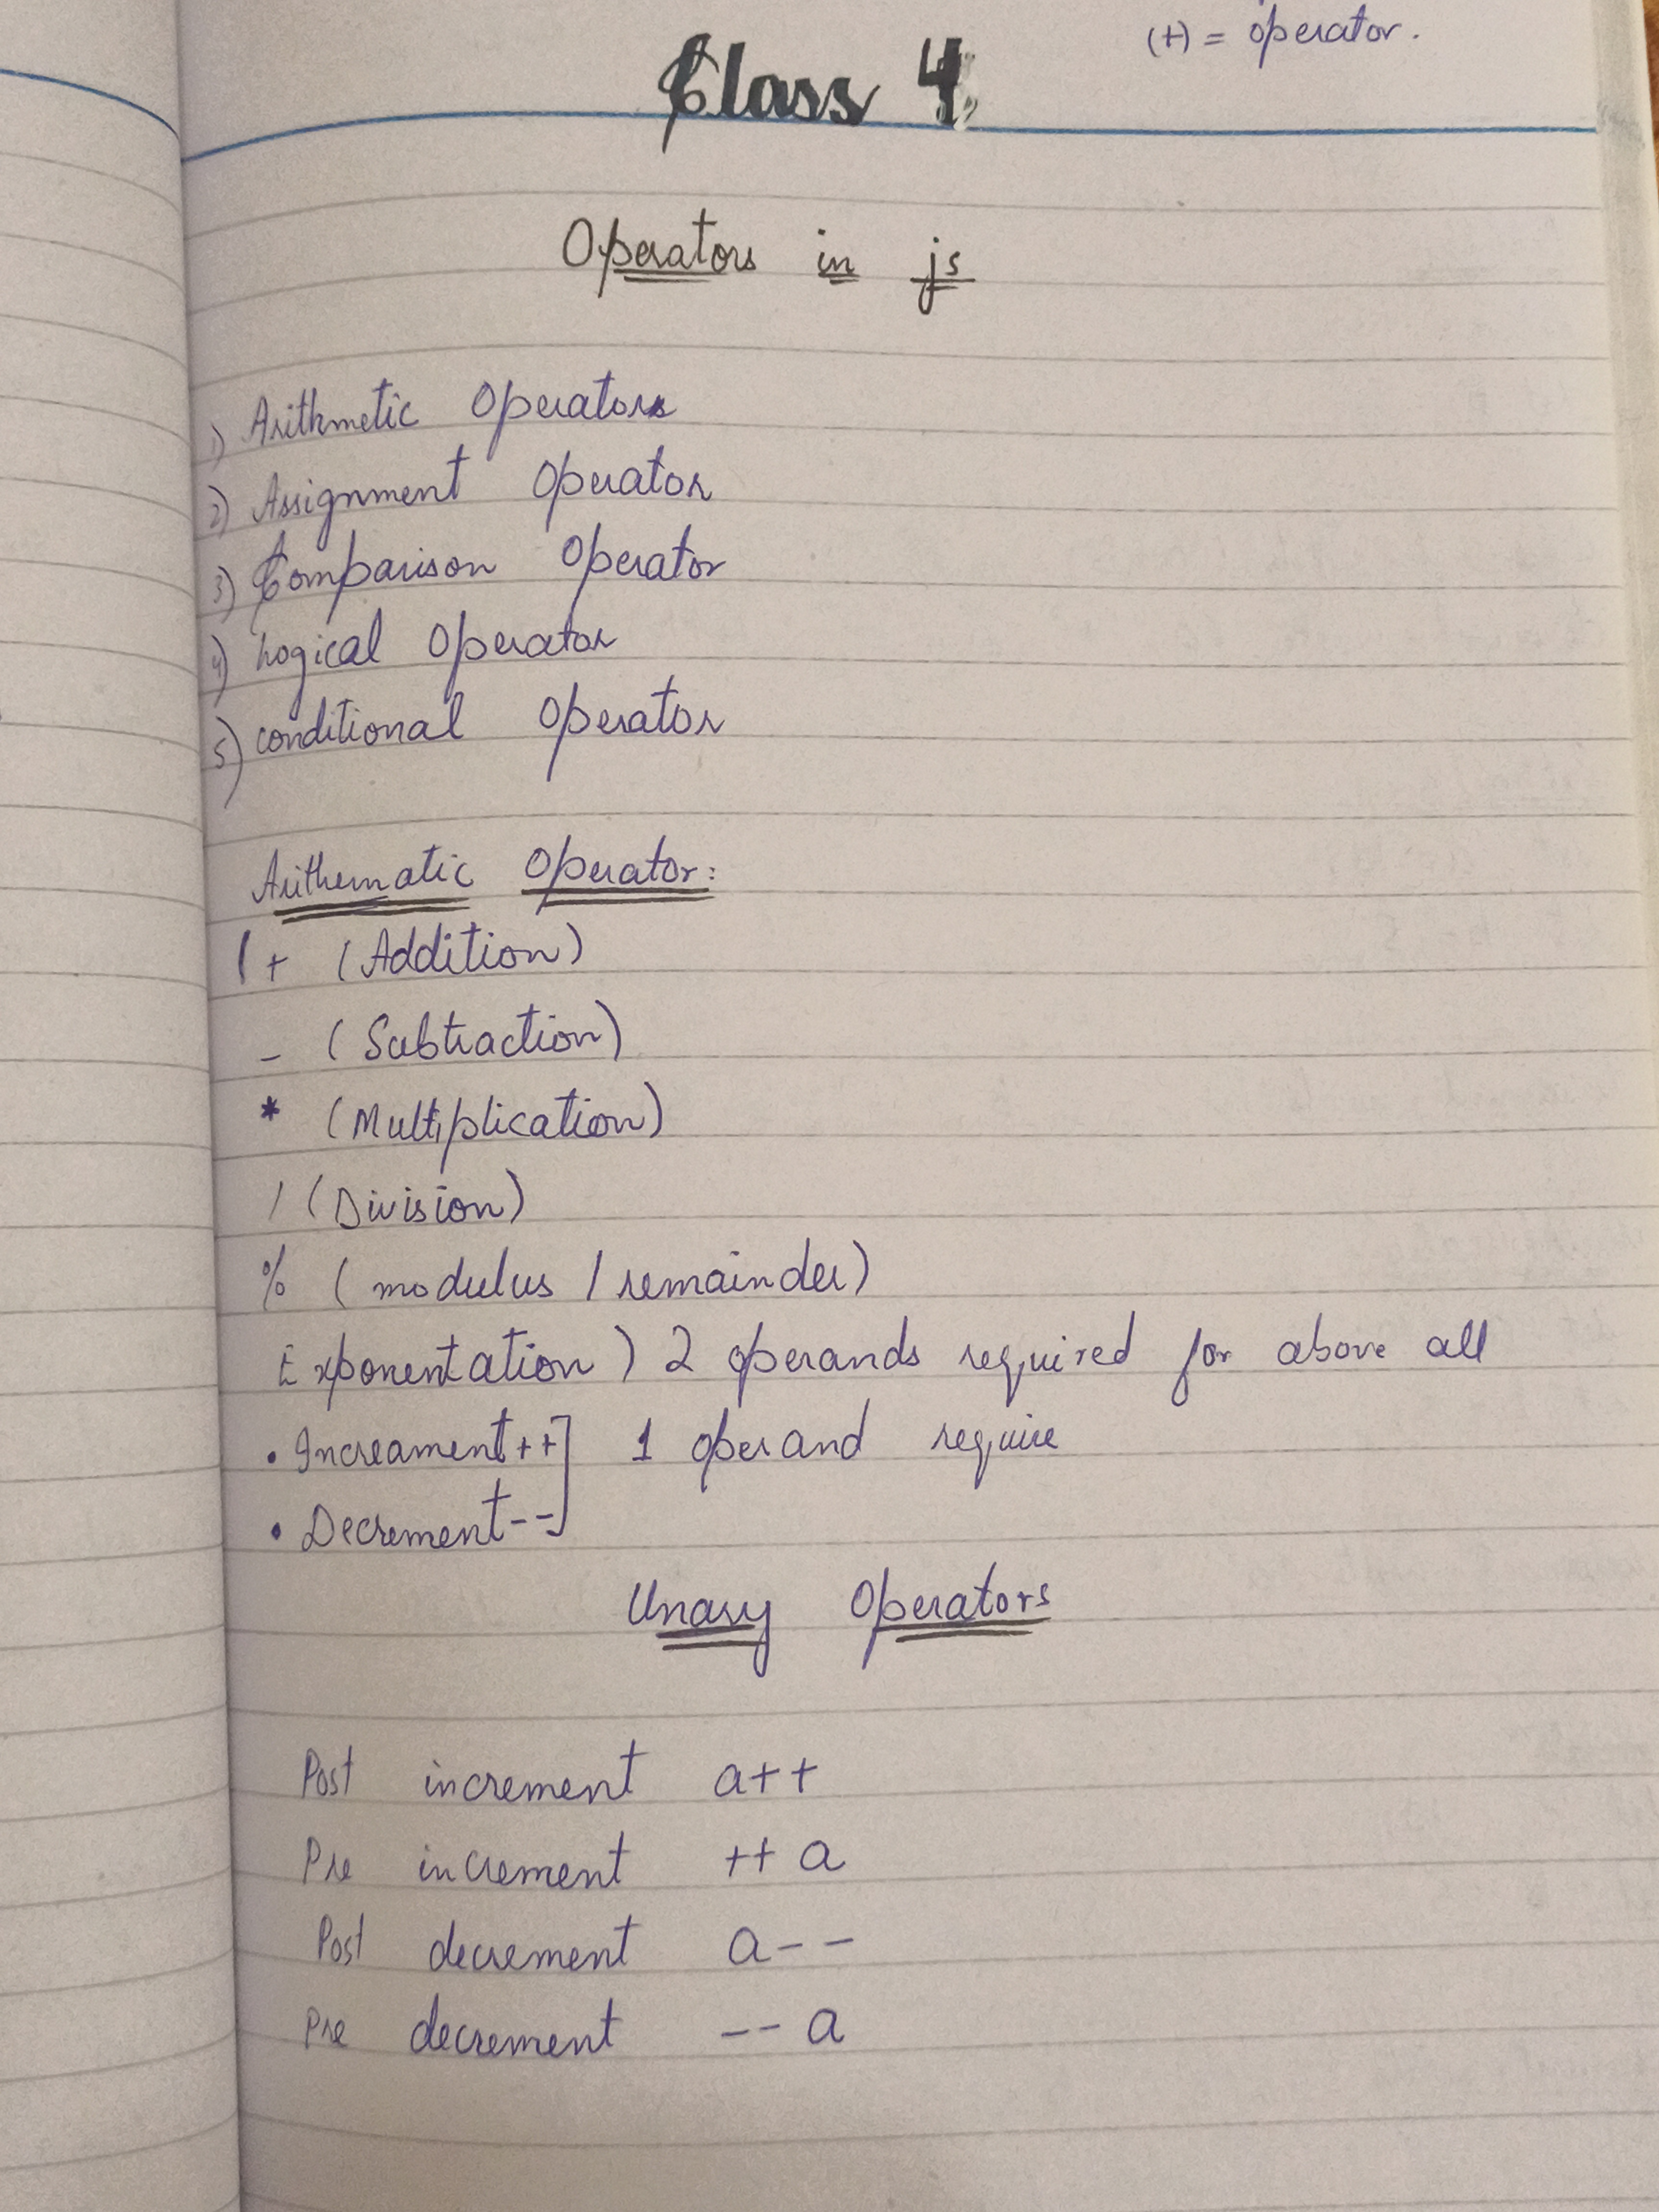 (+) = operator.
Class 4
Operators in js
1) Arithmetic Operators
2) Assignment Operator
3) Comparison Operator
4) Logical Operator
5) conditional Operator
Arithematic Operator:
+ (Addition)
- (Subtraction)
* (Multiplication)
/ (Division)
% ( modulus / remainder)
Exponentation ) 2 operands required for above all
• Increament++] 1 operand require
• Decrement--]
Unary Operators
Post increment a++
Pre increment ++ a
Post decrement a--
Pre decrement -- a